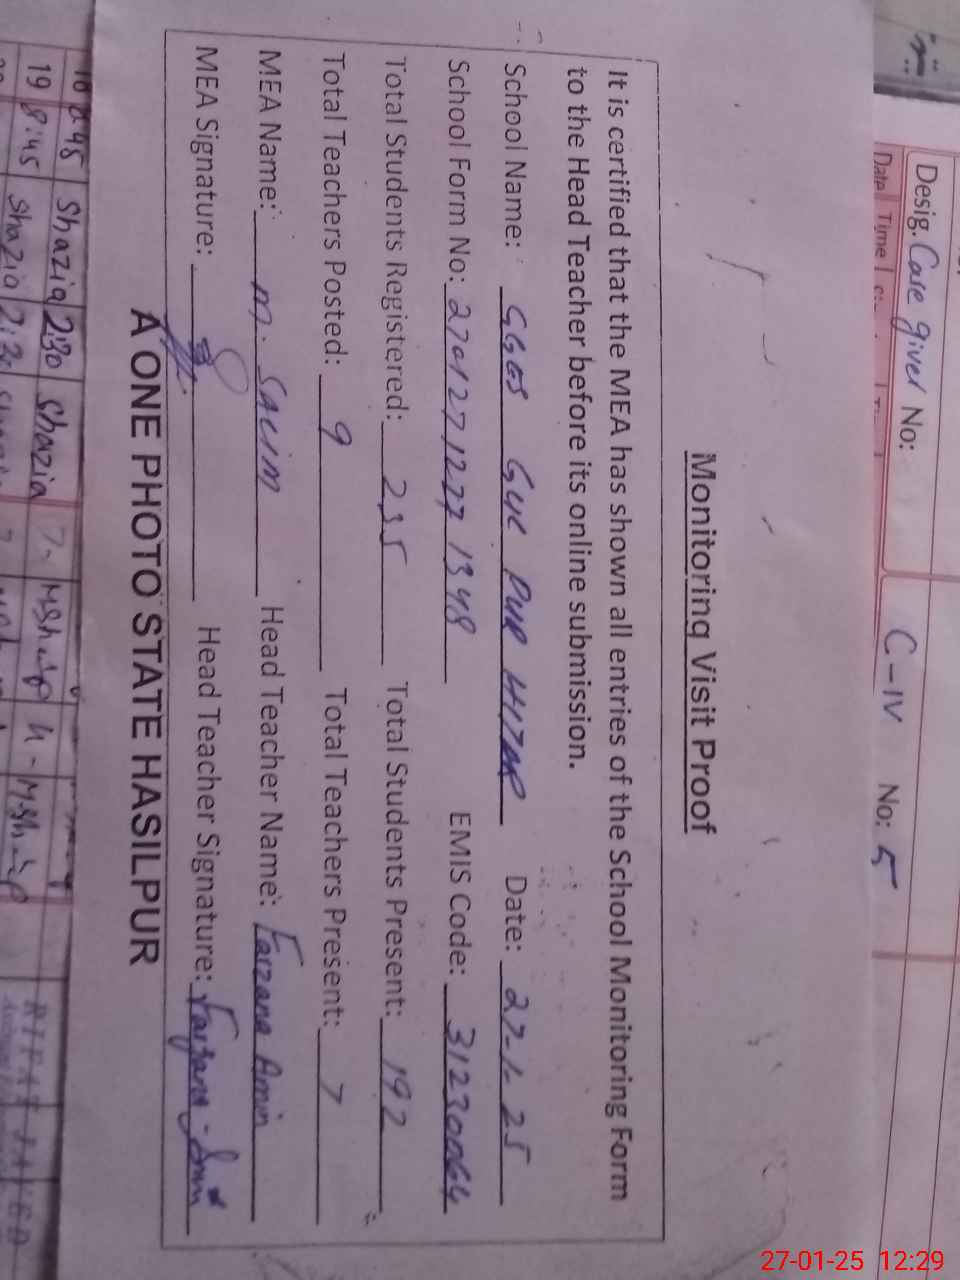 Desig. Care giver No: C-IV No: 5
Date Time
Monitoring Visit Proof
It is certified that the MEA has shown all entries of the School Monitoring Form
to the Head Teacher before its online submission.
School Name: GGES GUL PUR HITAR Date: 27-1-25
School Form No: 2701271227 1348 EMIS Code: 31230064
Total Students Registered: 235 Total Students Present: 192
Total Teachers Posted: 9 Total Teachers Present: 7
MEA Name: M. SALIM Head Teacher Name: Farzana Amin
MEA Signature: Head Teacher Signature: Farzana
A ONE PHOTO STATE HASILPUR
18 8:45 Shazia 2:30 Shazia
19 8:45 Shazia 2:30
27-01-25 12:29